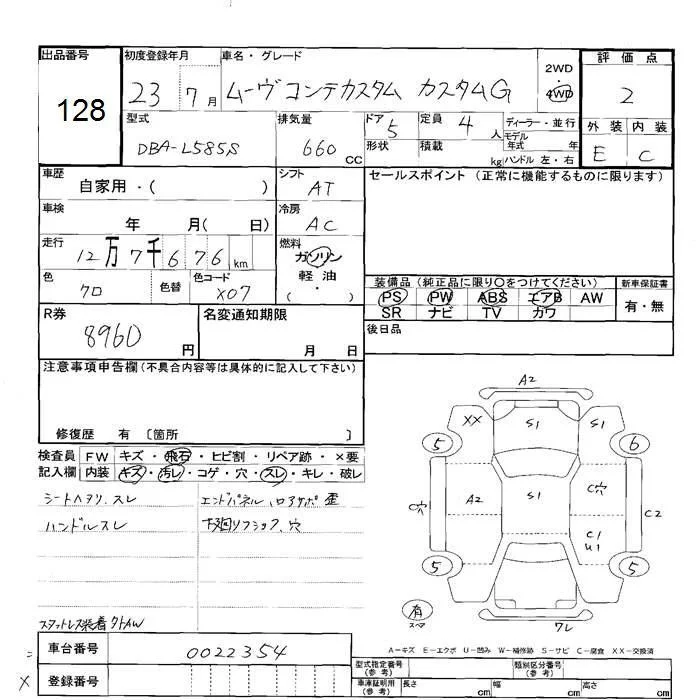 出品番号
128
初度登録年月
23 7月
車名・グレード
ムーヴ コンテカスタム カスタムG
2WD
4WD
評価点
2
外装 内装
E C
型式
DBA-L585S
排気量
660 cc
ドア 5
形状
定員 4人
積載 kg
ディーラー・並行
モデル
年式 年
ハンドル 左・右
車歴
自家用・( )
シフト
AT
車検
年 月( 日)
冷房
AC
走行
12万7千676km
燃料
ガソリン
軽油
( ・ )
色
クロ
色替
色コード
X07
セールスポイント (正常に機能するものに限ります)
装備品 (純正品に限り○をつけてください)
PS PW ABS エアB AW
SR ナビ TV カワ
新車保証書
有・無
R券
8960円
名変通知期限
月 日
後日品
注意事項申告欄(不具合内容等は具体的に記入して下さい)
修復歴 有 〔箇所 〕
検査員
記入欄
FW キズ・飛石・ヒビ割・リペア跡・×要
内装 キズ・汚レ・コゲ・穴・スレ・キレ・破レ
シートヘタリ、スレ
ハンドルスレ
エンドパネル、
リフジック、穴
スタットレス装着
車台番号
0022354
登録番号
A2
XX S1 S1
5 6
C穴 A2 S1 C穴 C2
C1
U1
5 5
有
スペア
ワレ
A－キズ E－エクボ U－凹み W－補修跡 S－サビ C－腐食 XX－交換済
型式指定番号
(参考)
類別区分番号
(参考)
車庫証明用
(参考)
長さ cm 幅 cm 高さ cm